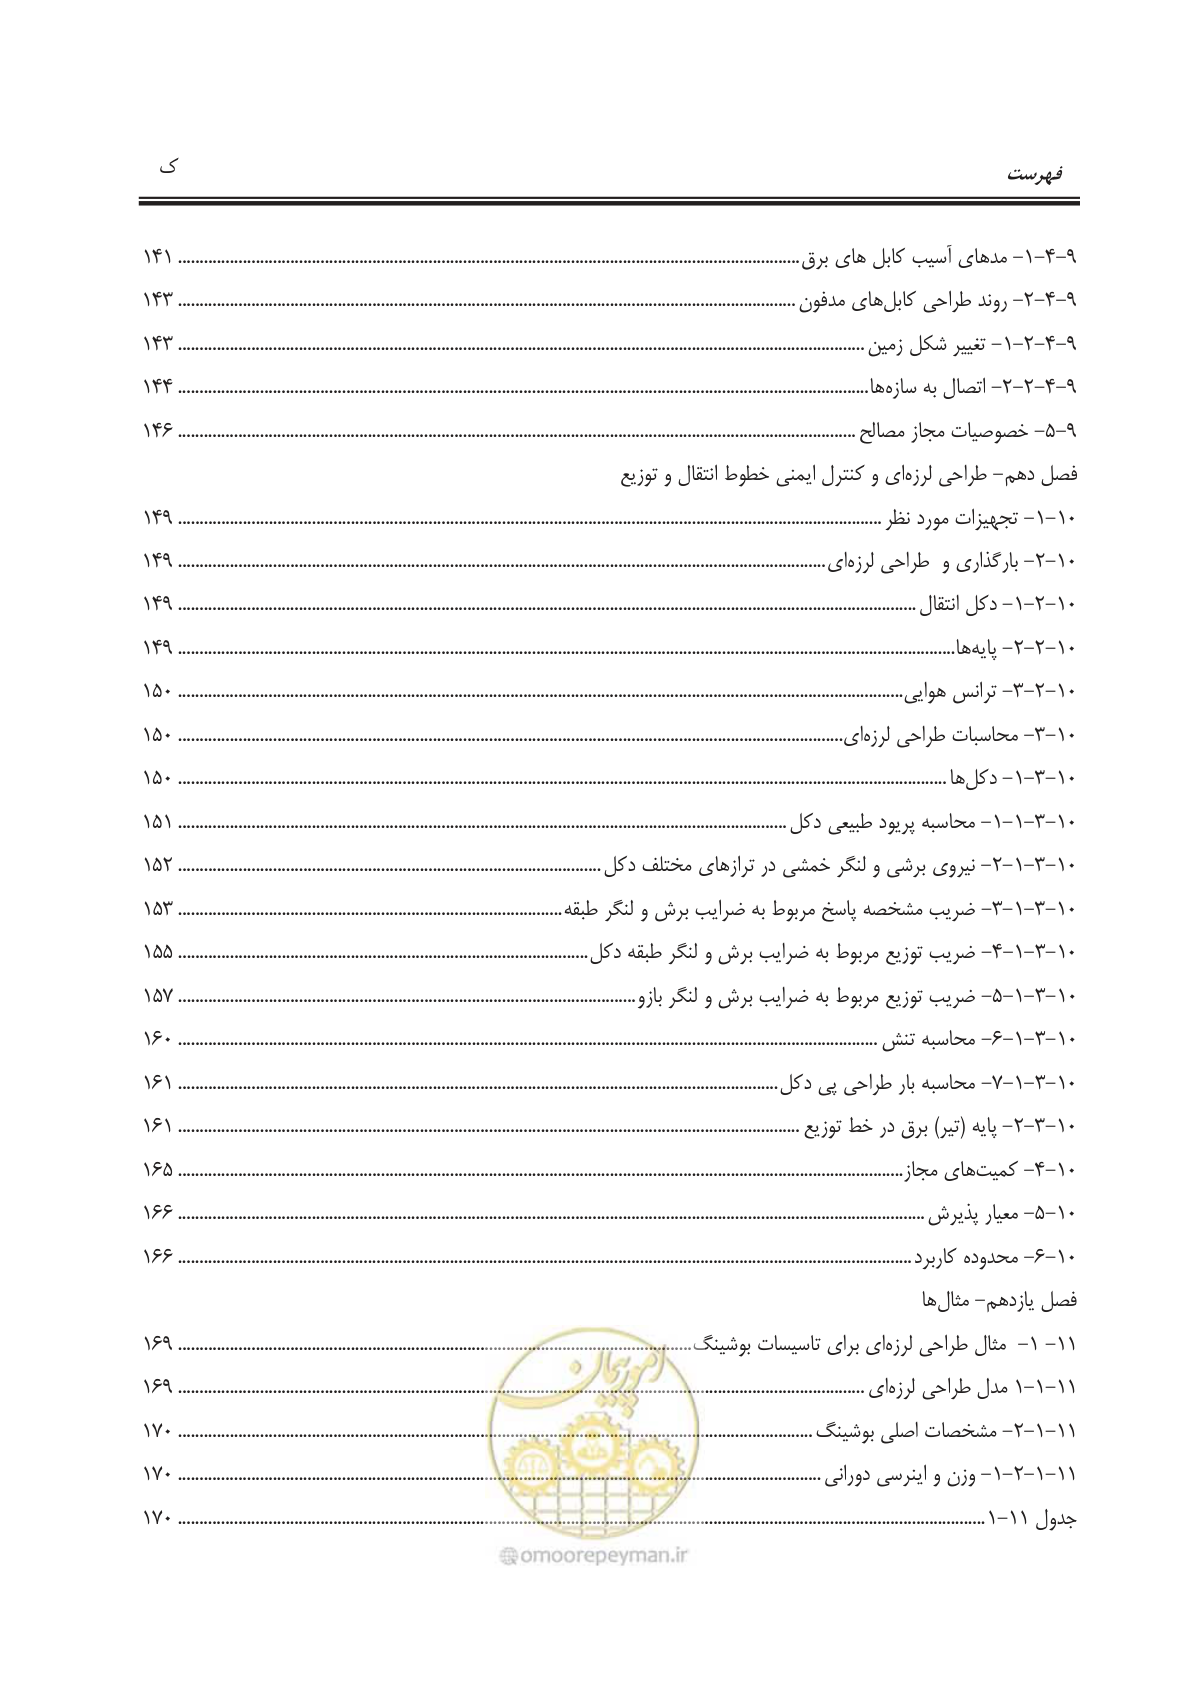 فهرست
ک
۹-۴-۱- مدهای آسیب کابل های برق ۱۴۱
۹-۴-۲- روند طراحی کابل‌های مدفون ۱۴۳
۹-۴-۲-۱- تغییر شکل زمین ۱۴۳
۹-۴-۲-۲- اتصال به سازه‌ها ۱۴۴
۹-۵- خصوصیات مجاز مصالح ۱۴۶
فصل دهم- طراحی لرزه‌ای و کنترل ایمنی خطوط انتقال و توزیع
۱۰-۱- تجهیزات مورد نظر ۱۴۹
۱۰-۲- بارگذاری و طراحی لرزه‌ای ۱۴۹
۱۰-۲-۱- دکل انتقال ۱۴۹
۱۰-۲-۲- پایه‌ها ۱۴۹
۱۰-۲-۳- ترانس هوایی ۱۵۰
۱۰-۳- محاسبات طراحی لرزه‌ای ۱۵۰
۱۰-۳-۱- دکل‌ها ۱۵۰
۱۰-۳-۱-۱- محاسبه پریود طبیعی دکل ۱۵۱
۱۰-۳-۱-۲- نیروی برشی و لنگر خمشی در ترازهای مختلف دکل ۱۵۲
۱۰-۳-۱-۳- ضریب مشخصه پاسخ مربوط به ضرایب برش و لنگر طبقه ۱۵۳
۱۰-۳-۱-۴- ضریب توزیع مربوط به ضرایب برش و لنگر طبقه دکل ۱۵۵
۱۰-۳-۱-۵- ضریب توزیع مربوط به ضرایب برش و لنگر بازو ۱۵۷
۱۰-۳-۱-۶- محاسبه تنش ۱۶۰
۱۰-۳-۱-۷- محاسبه بار طراحی پی دکل ۱۶۱
۱۰-۳-۲- پایه (تیر) برق در خط توزیع ۱۶۱
۱۰-۴- کمیت‌های مجاز ۱۶۵
۱۰-۵- معیار پذیرش ۱۶۶
۱۰-۶- محدوده کاربرد ۱۶۶
فصل یازدهم- مثال‌ها
۱۱- ۱- مثال طراحی لرزه‌ای برای تاسیسات بوشینگ ۱۶۹
۱۱-۱-۱ مدل طراحی لرزه‌ای ۱۶۹
۱۱-۱-۲- مشخصات اصلی بوشینگ ۱۷۰
۱۱-۱-۲-۱- وزن و اینرسی دورانی ۱۷۰
جدول ۱۱-۱ ۱۷۰
امور پیمان
@omoorepeyman.ir